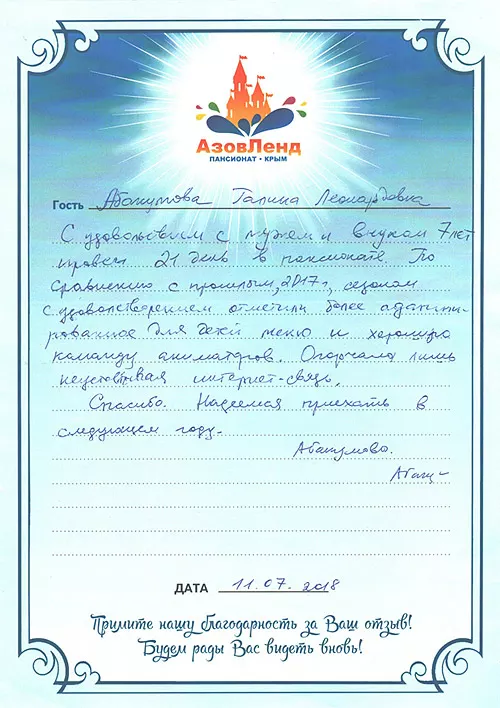 АзовЛенд
ПАНСИОНАТ • КРЫМ
Гость Абакумова Галина Леонардовна
С удовольствием с мужем и внуком 7 лет
провели 21 день в пансионате. По
сравнению с прошлым, 2017г, сезоном
с удовлетворением отметили более адапти-
рованное для детей меню и хорошую
команду аниматоров. Огорчала лишь
неустойчивая интернет-связь.
Спасибо. Надеемся приехать в
следующем году.
Абакумова.
Абаку
ДАТА 11.07.2018
Примите нашу благодарность за Ваш отзыв!
Будем рады Вас видеть вновь!